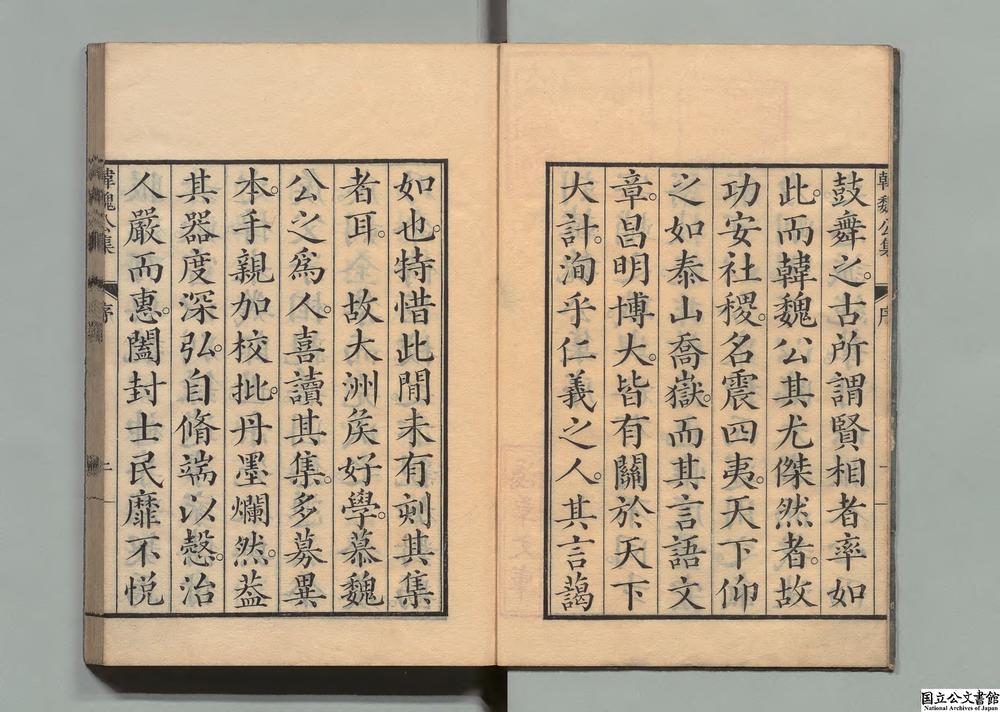 韓魏公集
序
一
鼓舞之。古所謂賢相者率如
此。而韓魏公其尤傑然者。故
功安社稷。名震四夷。天下仰
之如泰山喬嶽。而其言語文
章。昌明博大。皆有關於天下
大計。洵乎仁義之人。其言藹
如也。特惜此閒未有刻其集
者耳。故大洲矦好學。慕魏
公之爲人。喜讀其集。多募異
本。手親加校批。丹墨爛然。葢
其器度深弘。自脩端以愨。治
人嚴而惠。闔封士民靡不悅
韓魏公集
序
二
国立公文書館
National Archives of Japan